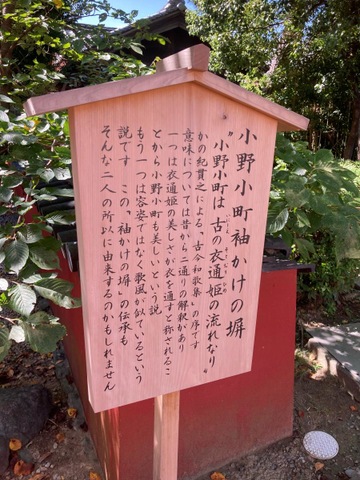 小野小町袖かけの塀
"小野小町は古の衣通姫の流れなり"
かの紀貫之による、古今和歌集の序です
意味については昔から二通りの解釈があり
一つは衣通姫の美しさが衣を通すと称されるこ
とから小野小町も美しいという説
もう一つは容姿ではなく歌風が似ているという
説です この、袖かけの塀、の伝承も
そんな二人の所以に由来するのかもしれません